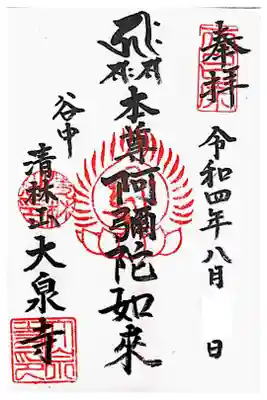 奉拝
令和四年八月 日
本尊阿彌陀如来
谷中
清林山大泉寺